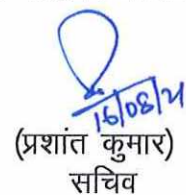 16/08/21
(प्रशांत कुमार)
सचिव